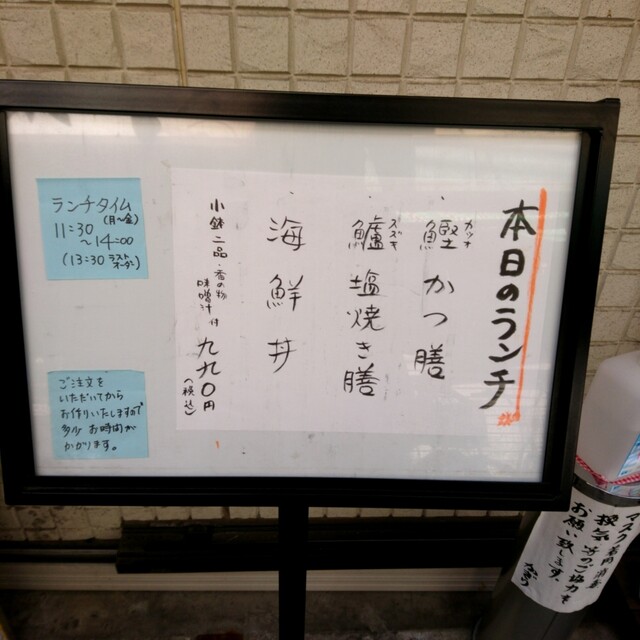 本日のランチ
カツオ
鰹かつ膳
スズキ
鱸塩焼き膳
海鮮丼
小鉢二品 香の物 味噌汁 付 九九〇円 (税込)
ランチタイム
(月〜金)
11:30
〜14:00
(13:30 ラスト
オーダー)
ご注文を
いただいてから
お作りいたしますので
多少 お時間が
かかります。
マスク着用
換気
お願い致します